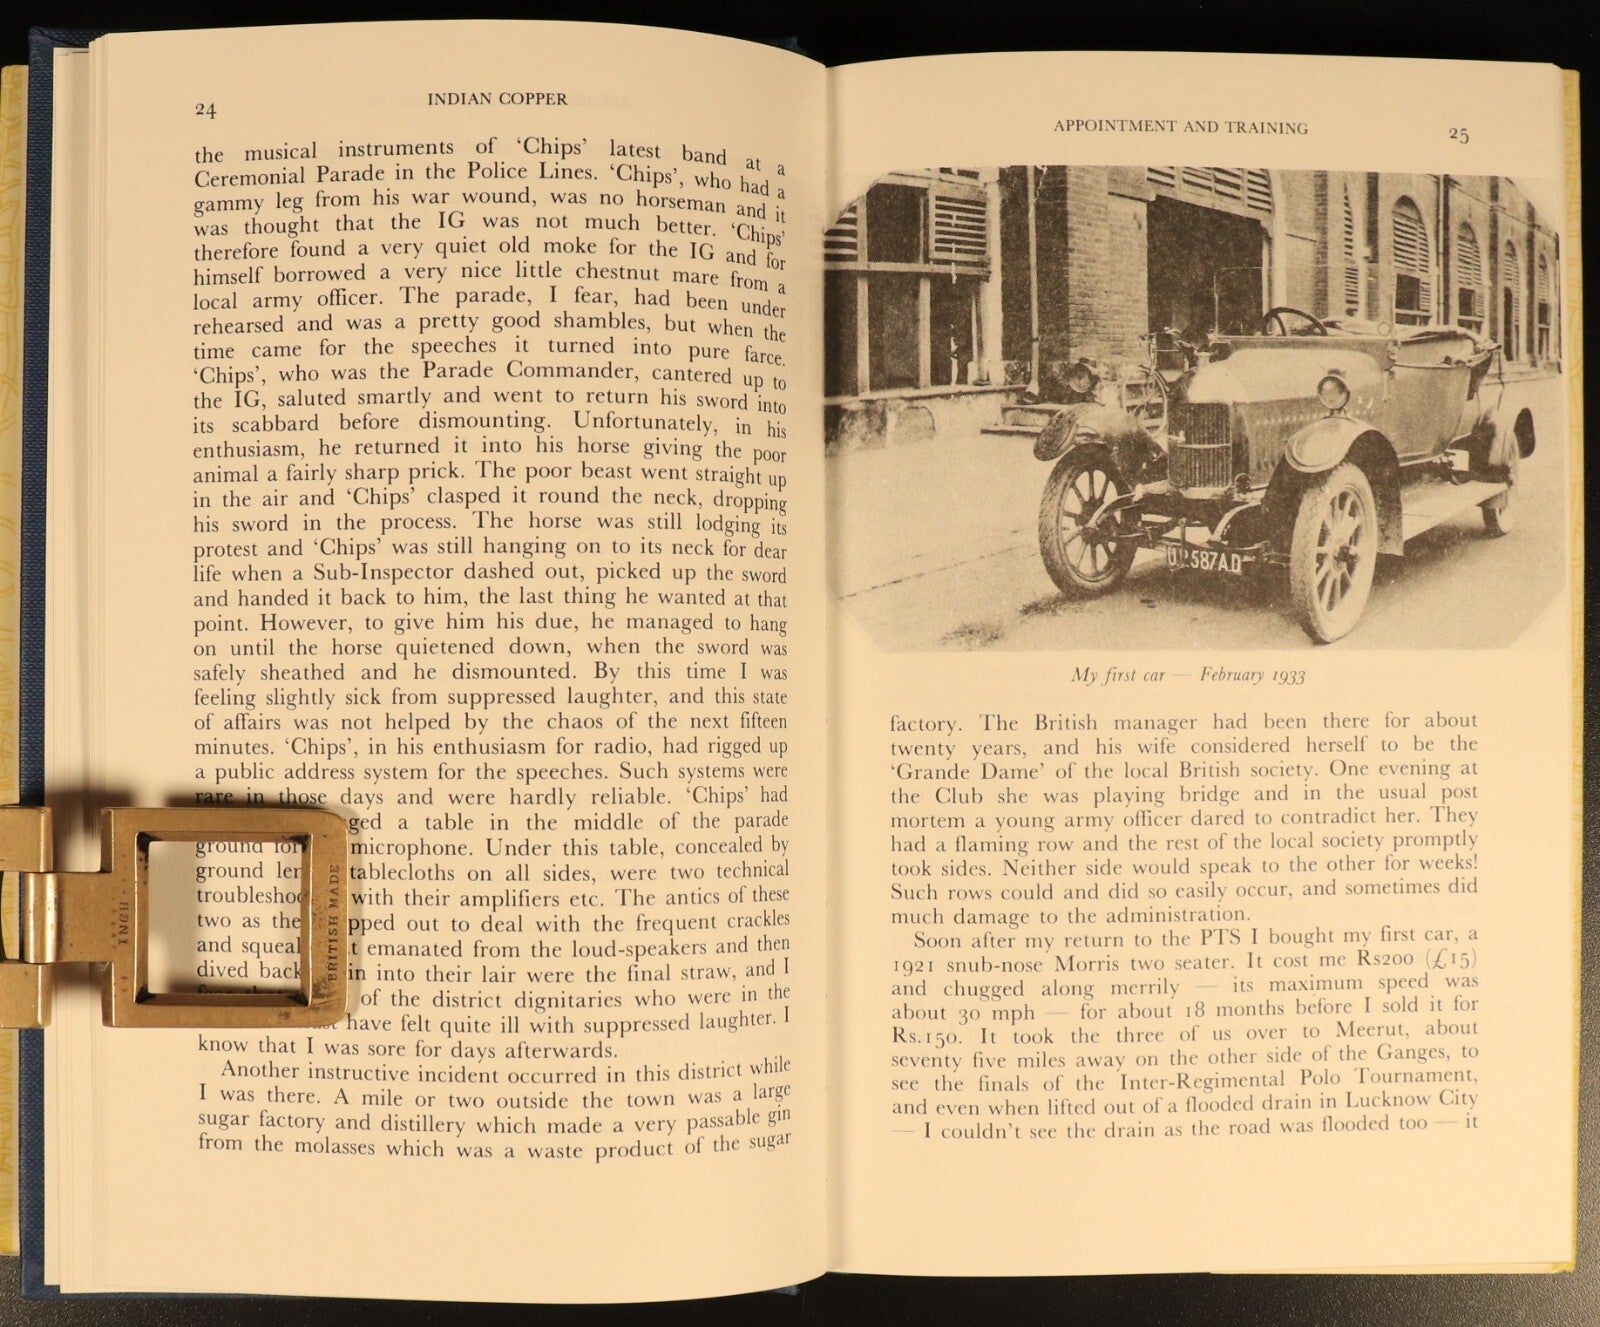 24
INDIAN COPPER
the musical instruments of ‘Chips’ latest band at a
Ceremonial Parade in the Police Lines. ‘Chips’, who had a
gammy leg from his war wound, was no horseman and it
was thought that the IG was not much better. ‘Chips’
therefore found a very quiet old moke for the IG and for
himself borrowed a very nice little chestnut mare from a
local army officer. The parade, I fear, had been under
rehearsed and was a pretty good shambles, but when the
time came for the speeches it turned into pure farce.
‘Chips’, who was the Parade Commander, cantered up to
the IG, saluted smartly and went to return his sword into
its scabbard before dismounting. Unfortunately, in his
enthusiasm, he returned it into his horse giving the poor
animal a fairly sharp prick. The poor beast went straight up
in the air and ‘Chips’ clasped it round the neck, dropping
his sword in the process. The horse was still lodging its
protest and ‘Chips’ was still hanging on to its neck for dear
life when a Sub-Inspector dashed out, picked up the sword
and handed it back to him, the last thing he wanted at that
point. However, to give him his due, he managed to hang
on until the horse quietened down, when the sword was
safely sheathed and he dismounted. By this time I was
feeling slightly sick from suppressed laughter, and this state
of affairs was not helped by the chaos of the next fifteen
minutes. ‘Chips’, in his enthusiasm for radio, had rigged up
a public address system for the speeches. Such systems were
rare in those days and were hardly reliable. ‘Chips’ had
ged a table in the middle of the parade
ground microphone. Under this table, concealed by
ground tablecloths on all sides, were two technical
with their amplifiers etc. The antics of these
two as pped out to deal with the frequent crackles
and t emanated from the loud-speakers and then
dived back in into their lair were the final straw, and I
of the district dignitaries who were in the
have felt quite ill with suppressed laughter. I
know that I was sore for days afterwards.
Another instructive incident occurred in this district while
I was there. A mile or two outside the town was a large
sugar factory and distillery which made a very passable gin
from the molasses which was a waste product of the sugar
INCH
BRITISH MADE
APPOINTMENT AND TRAINING
25
U.P.587A.D
My first car — February 1933
factory. The British manager had been there for about
twenty years, and his wife considered herself to be the
‘Grande Dame’ of the local British society. One evening at
the Club she was playing bridge and in the usual post
mortem a young army officer dared to contradict her. They
had a flaming row and the rest of the local society promptly
took sides. Neither side would speak to the other for weeks!
Such rows could and did so easily occur, and sometimes did
much damage to the administration.
Soon after my return to the PTS I bought my first car, a
1921 snub-nose Morris two seater. It cost me Rs200 (£15)
and chugged along merrily — its maximum speed was
about 30 mph — for about 18 months before I sold it for
Rs.150. It took the three of us over to Meerut, about
seventy five miles away on the other side of the Ganges, to
see the finals of the Inter-Regimental Polo Tournament,
and even when lifted out of a flooded drain in Lucknow City
— I couldn’t see the drain as the road was flooded too — it